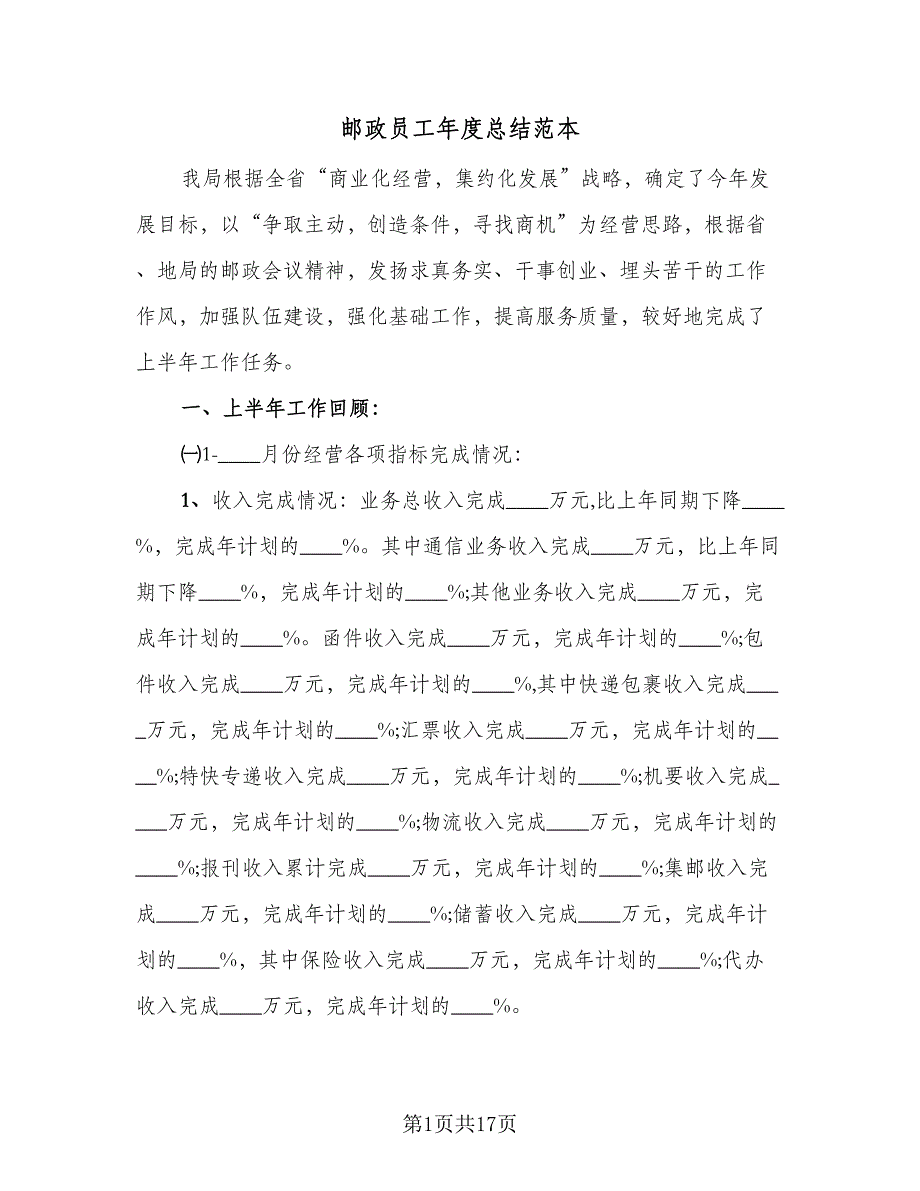 邮政员工年度总结范本
我局根据全省“商业化经营，集约化发展”战略，确定了今年发
展目标，以“争取主动，创造条件，寻找商机”为经营思路，根据省
、地局的邮政会议精神，发扬求真务实、干事创业、埋头苦干的工作
作风，加强队伍建设，强化基础工作，提高服务质量，较好地完成了
上半年工作任务。
一、上半年工作回顾：
㈠1-____月份经营各项指标完成情况：
1、收入完成情况：业务总收入完成____万元,比上年同期下降____
%，完成年计划的____%。其中通信业务收入完成____万元，比上年同
期下降____%，完成年计划的____%;其他业务收入完成____万元，完
成年计划的____%。函件收入完成____万元，完成年计划的____%;包
件收入完成____万元，完成年计划的____%,其中快递包裹收入完成___
_万元，完成年计划的____%;汇票收入完成____万元，完成年计划的__
__%;特快专递收入完成____万元，完成年计划的____%;机要收入完成_
___万元，完成年计划的____%;物流收入完成____万元，完成年计划的
____%;报刊收入累计完成____万元，完成年计划的____%;集邮收入完
成____万元，完成年计划的____%;储蓄收入完成____万元，完成年计
划的____%，其中保险收入完成____万元，完成年计划的____%;代办
收入完成____万元，完成年计划的____%。
第1页共17页